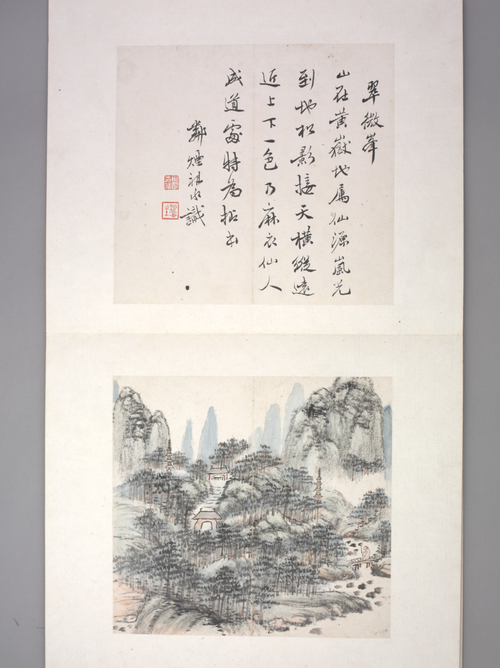 翠微峯
山在黃嶽地屬仙源嵐光
到地松影接天橫縱遠
近上下一色乃麻衣仙人
成道處特為拈出
煙祖 識